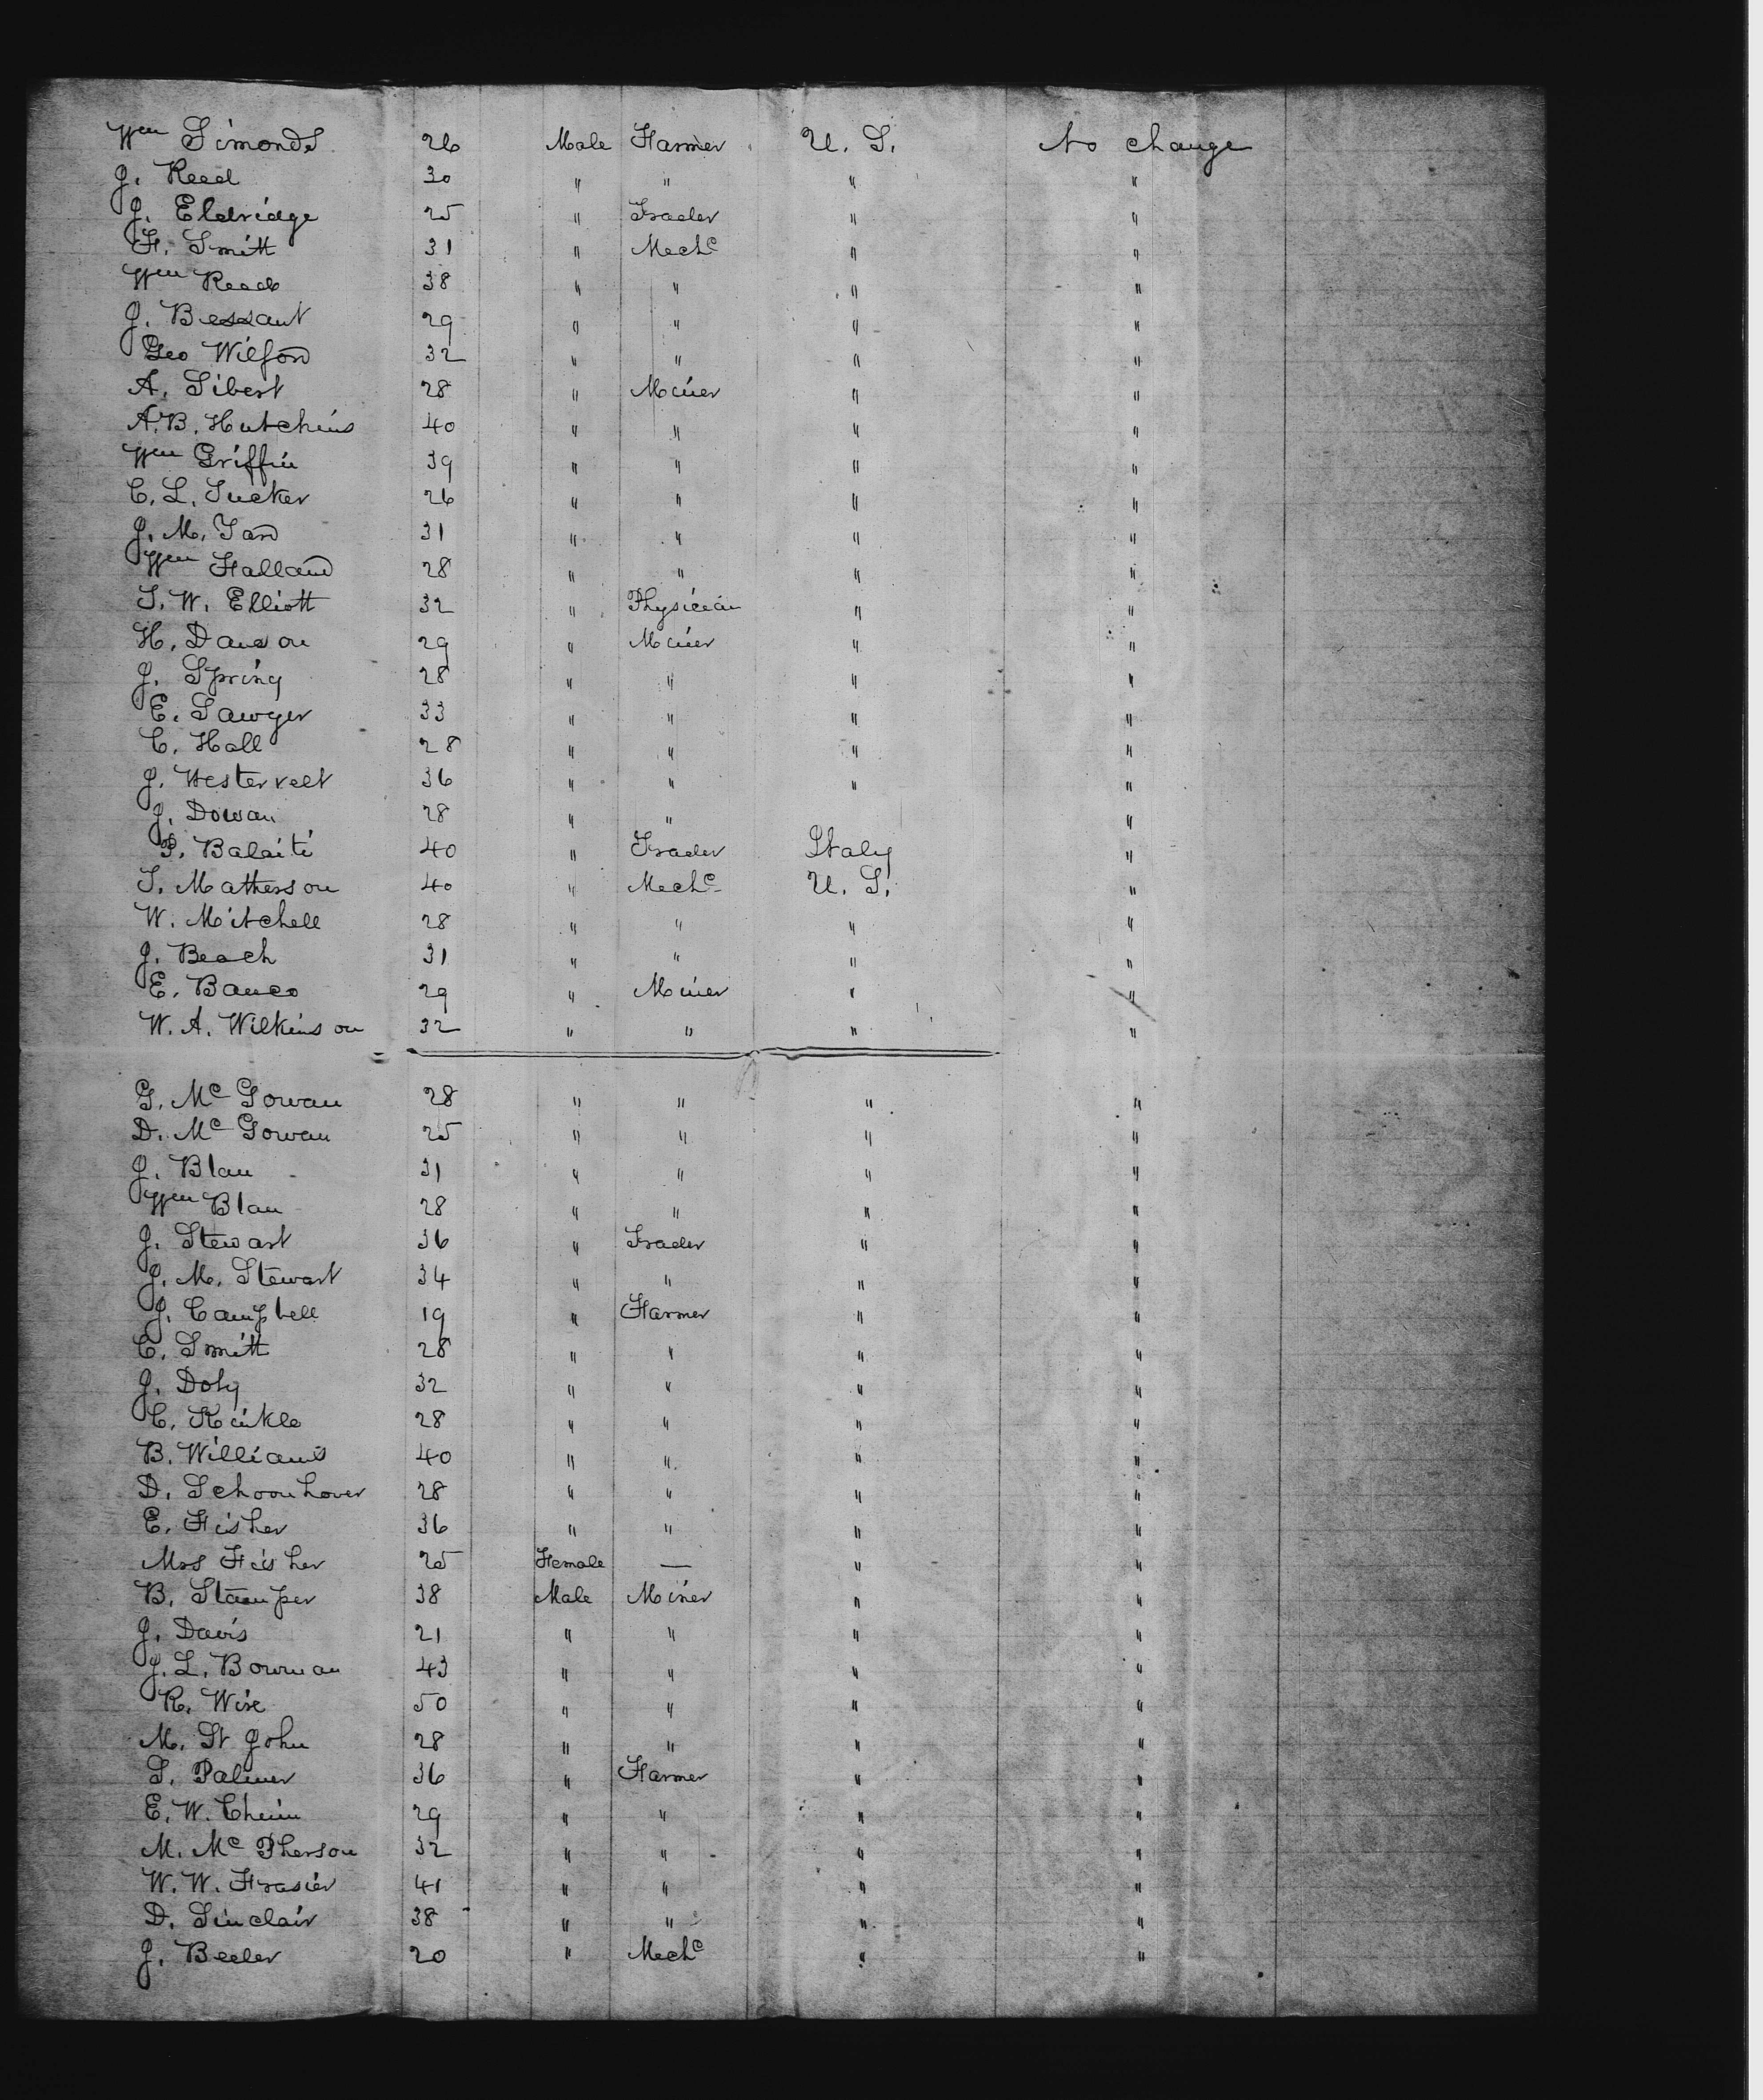 Wm Simonds 26 Male Farmer U. S. No change
J. Reed 30 " " " "
J. Eldridge 25 " Trader " "
F. Smith 31 " Mechc " "
Wm Reed 38 " " " "
J. Bessant 29 " " " "
Geo Wilford 32 " " " "
A. Sibert 28 " Miner " "
A. B. Hutchins 40 " " " "
Wm Griffin 39 " " " "
C. L. Tucker 26 " " " "
J. M. Yard 31 " " " "
Wm Halland 28 " " " "
S. W. Elliott 32 " Physician " "
H. Dawson 29 " Miner " "
J. Spring 28 " " " "
E. Sawyer 33 " " " "
C. Hall 28 " " " "
J. Westervelt 36 " " " "
J. Dowan 28 " " " "
P. Balaiti 40 " Trader Italy "
S. Mathersson 40 " Mechc U. S. "
W. Mitchell 28 " " " "
J. Beach 31 " " " "
E. Banco 29 " Miner " "
W. A. Wilkinson 32 " " " "
G. Mc Gowan 28 " " " "
D. Mc Gowan 25 " " " "
J. Blau 31 " " " "
Wm Blau 28 " " " "
J. Stewart 36 " Trader " "
J. M. Stewart 34 " " " "
J. Campbell 19 " Farmer " "
C. Smith 28 " " " "
J. Doty 32 " " " "
C. Kinkle 28 " " " "
B. Williams 40 " " " "
D. Schoonhover 28 " " " "
E. Fisher 36 " " " "
Mrs Fisher 25 Female — " "
B. Stamper 38 Male Miner " "
J. Davis 21 " " " "
J. L. Bowman 43 " " " "
R. Wise 50 " " " "
M. St John 28 " " " "
S. Palmer 36 " Farmer " "
E. W. 29 " " " "
M. Mc Pherson 32 " " " "
W. W. Frasier 41 " " " "
D. Sinclair 38 " " " "
J. Beeler 20 " Mechc " "